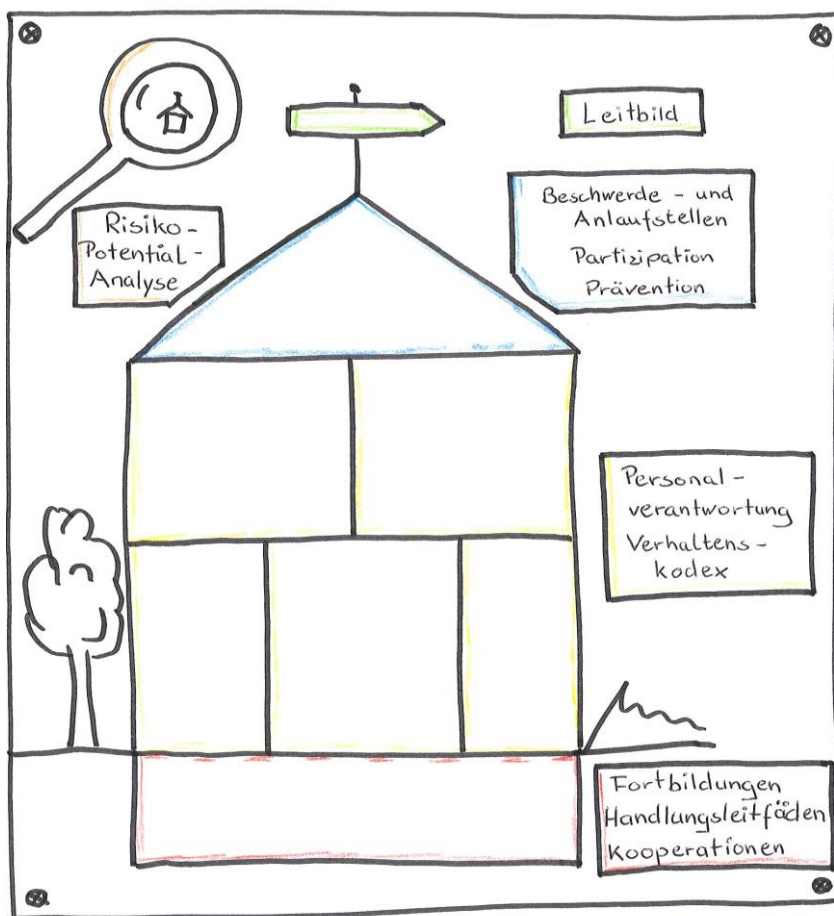 Leitbild
Risiko-
Potential-
Analyse
Beschwerde- und
Anlaufstellen
Partizipation
Prävention
Personal-
verantwortung
Verhaltens-
kodex
Fortbildungen
Handlungsleitfäden
Kooperationen